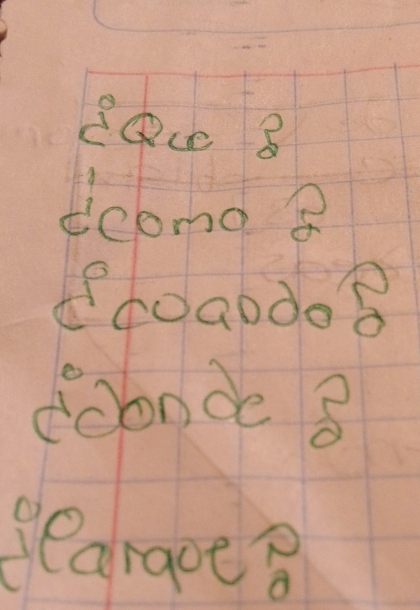 ¿Que?
¿como?
¿cuando?
¿donde?
¿Parque?